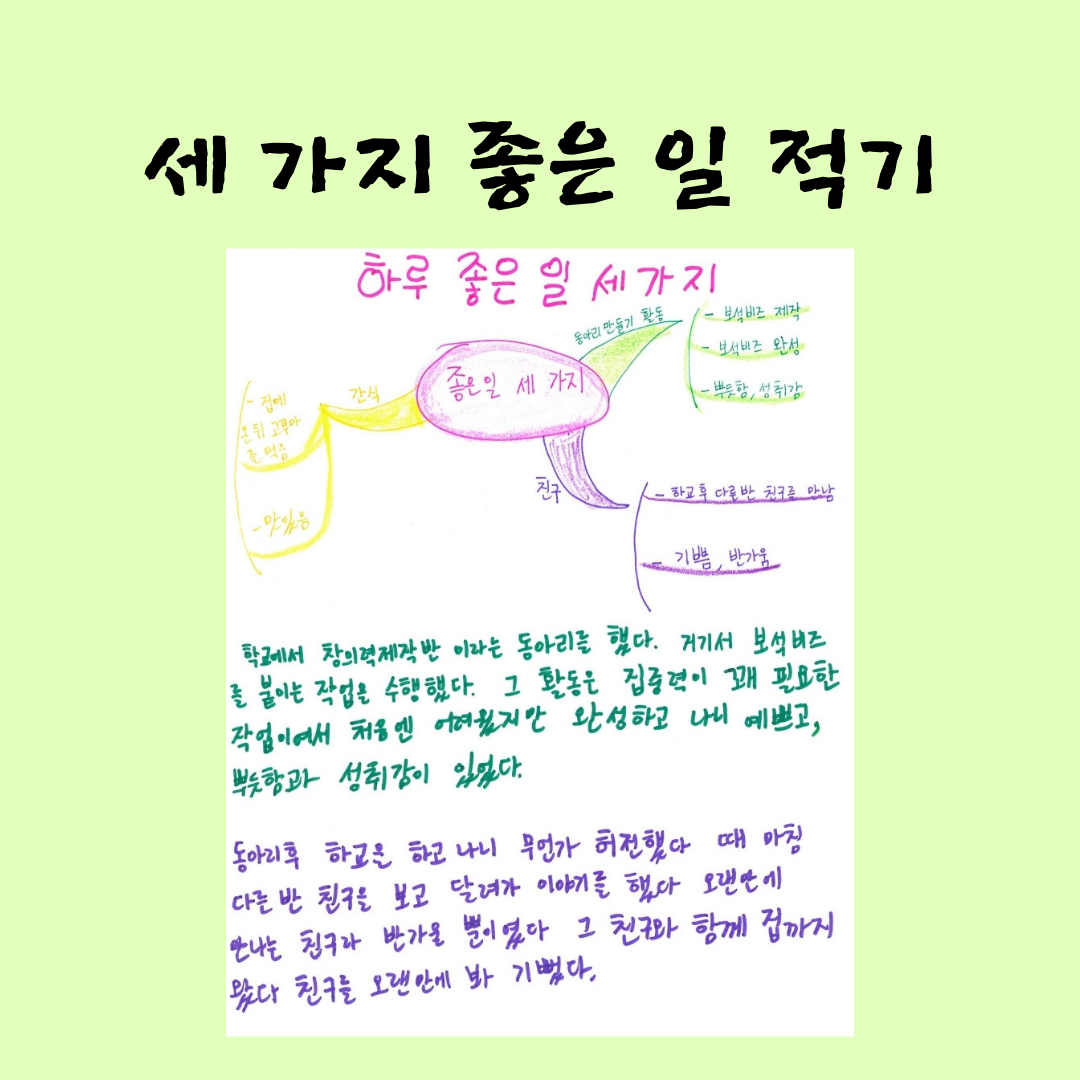 세 가지 좋은 일 적기
하루 좋은 일 세가지
동아리만들기 활동
- 보석비즈 제작
- 보석비즈 완성
- 뿌듯함, 성취감
좋은일 세 가지
간식
- 집에
온뒤 고구마
를 먹음
- 맛있음
친구
- 하교후 다른반 친구를 만남
- 기쁨, 반가움
학교에서 창의력제작반 이라는 동아리를 했다. 거기서 보석비즈
를 붙이는 작업을 수행했다. 그 활동은 집중력이 꽤 필요한
작업이여서 처음엔 어려웠지만 완성하고 나니 예쁘고,
뿌듯함과 성취감이 있었다.
동아리후 하교을 하고 나니 무언가 허전했다 때 마침
다른 반 친구을 보고 달려가 이야기를 했다 오랜만에
만나는 친구라 반가울 뿐이였다 그 친구와 함께 집까지
왔다 친구를 오랜만에 봐 기뻤다.